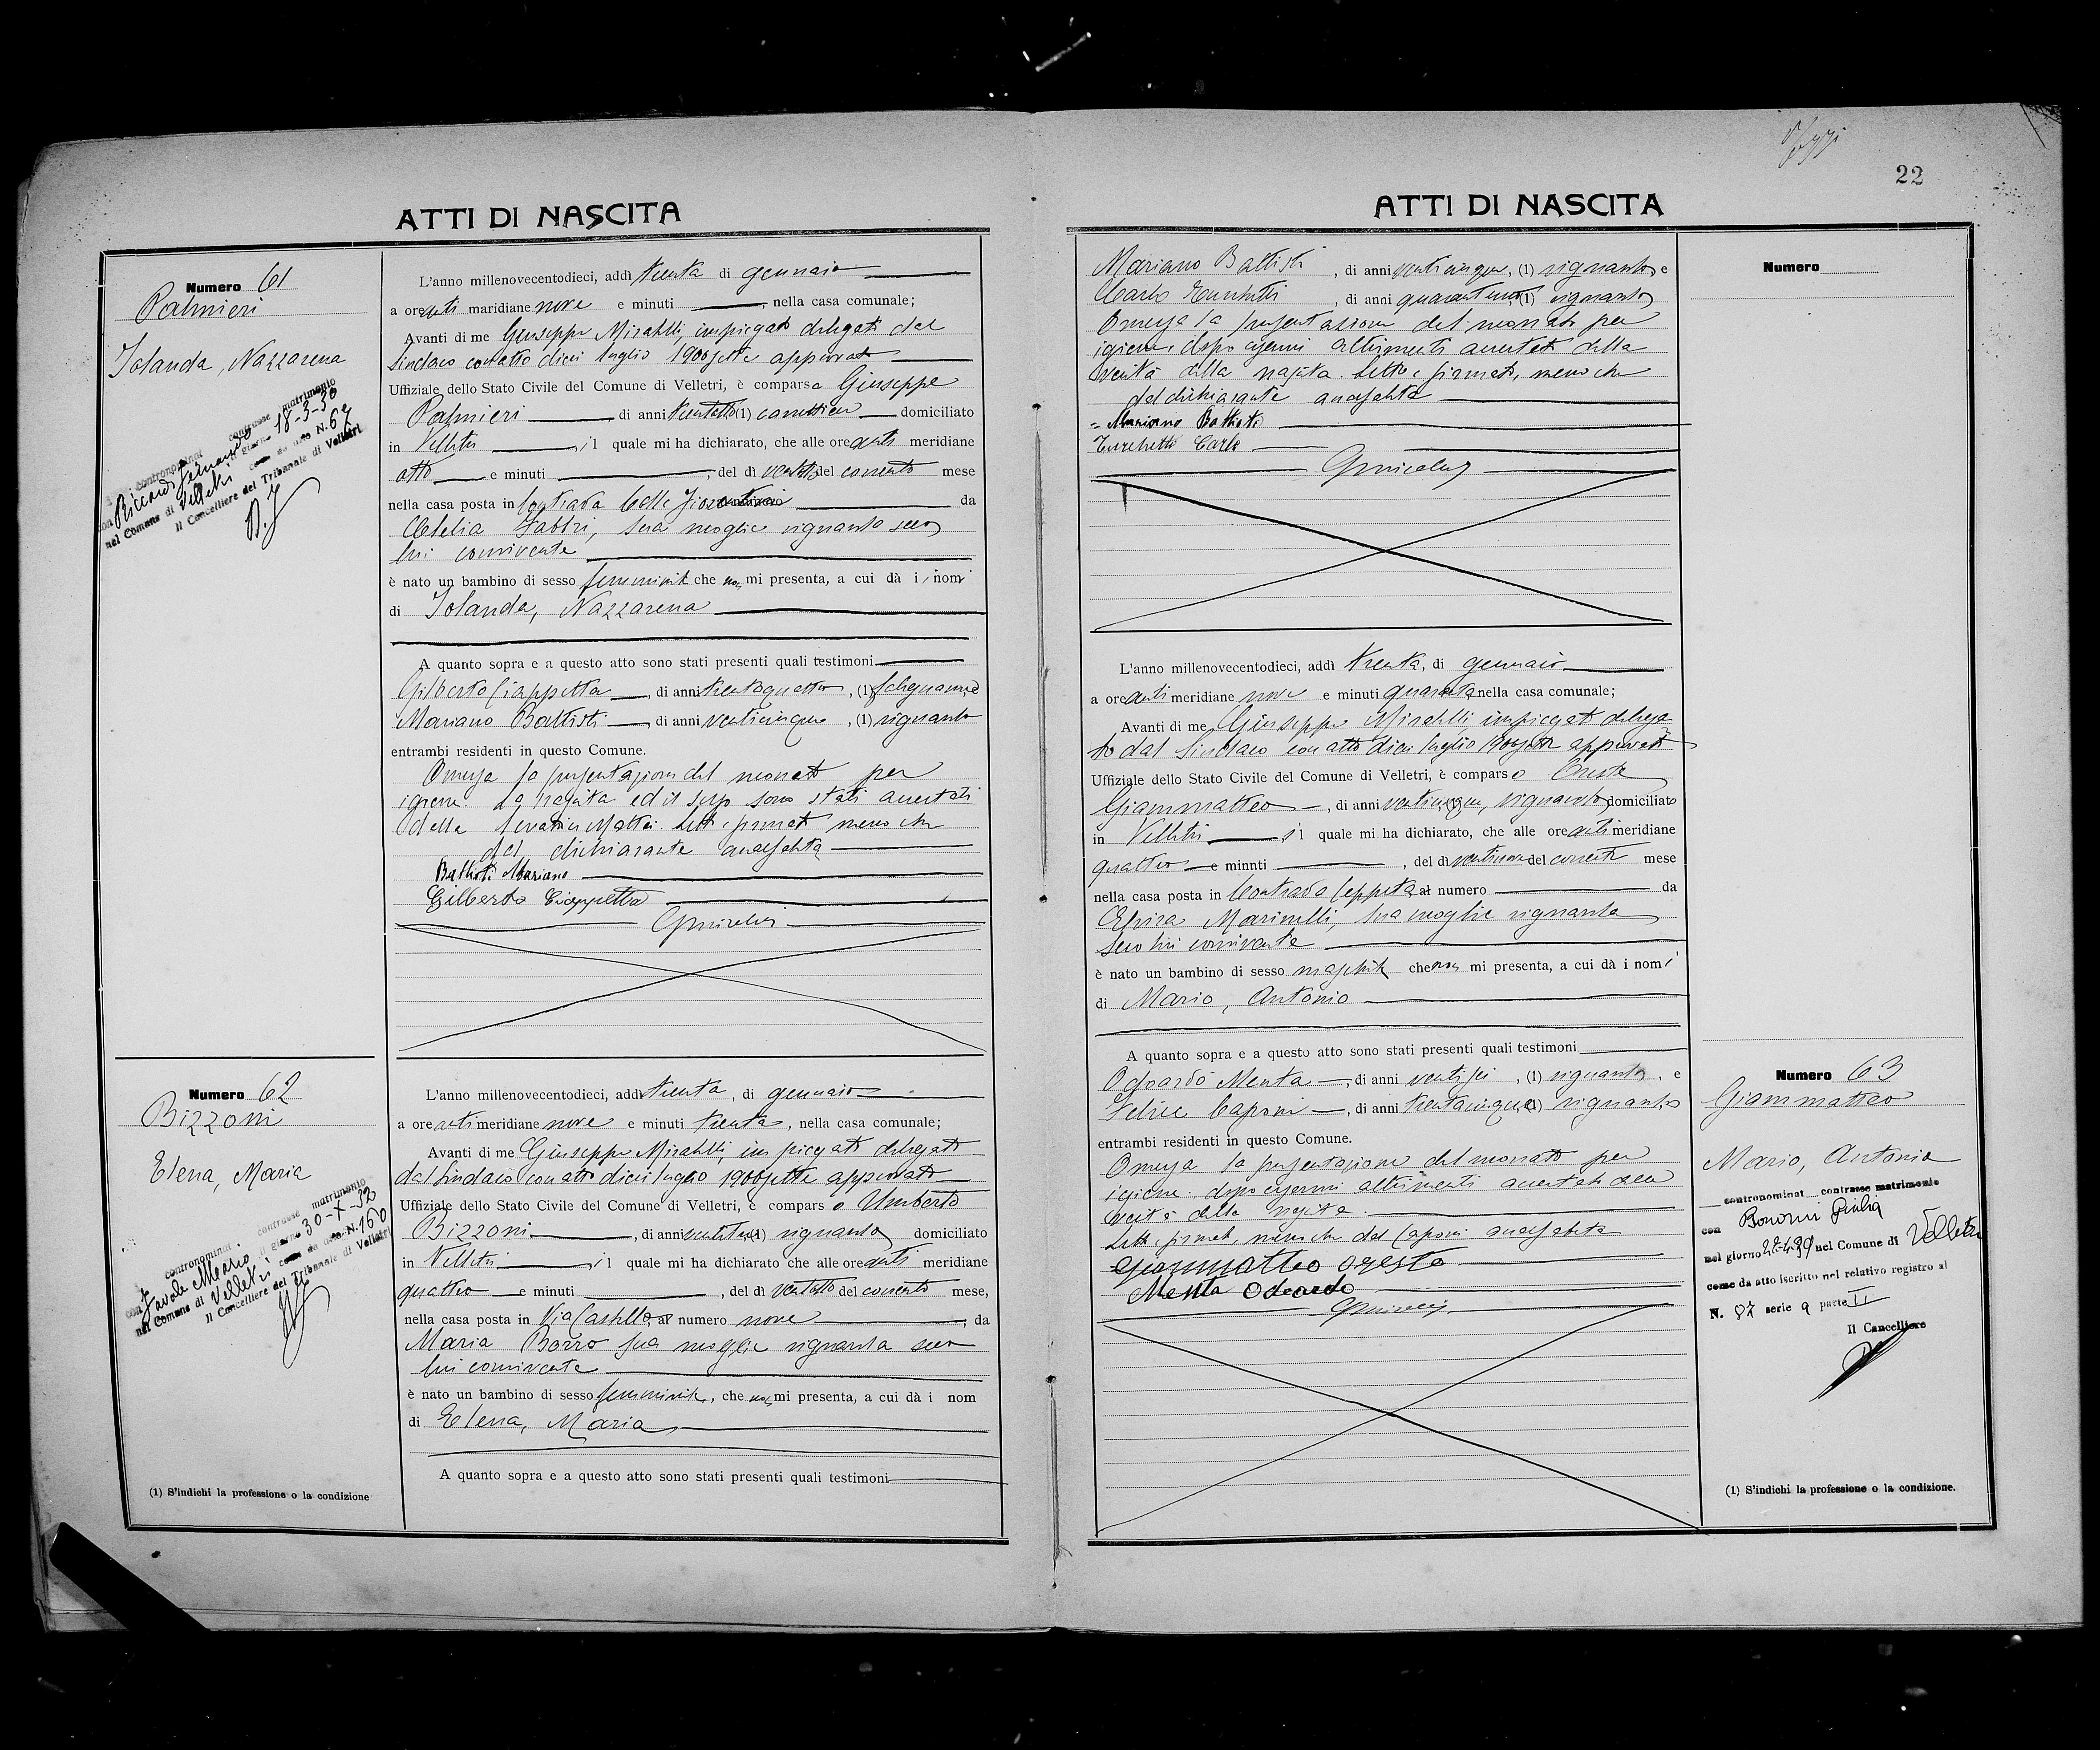 22
ATTI DI NASCITA
Numero 61
Palmieri
Iolanda, Nazzarena
contrasse matrimonio
il giorno 18-3-30
con Riccardi
nel Comune di Velletri
Il Cancelliere del Tribunale di Velletri
L'anno millenovecentodieci, addì trenta di gennaio
a ore anti maridiane nove e minuti , nella casa comunale;
Avanti di me Giuseppe Mirabelli, impiegato delegato dal
Sindaco con atto dieci luglio 1900sette approvato
Uffiziale dello Stato Civile del Comune di Velletri, è comparso Giuseppe
Palmieri di anni trentotto (1) carrettiere domiciliato
in Velletri , il quale mi ha dichiarato, che alle ore anti meridiane
otto e minuti , del dì ventotto del corrente mese
nella casa posta in Contrada Colle da
Clelia Fabbri, sua moglie vignarola seco
lui convivente
è nato un bambino di sesso femminile che non mi presenta, a cui dà i nomi
di Iolanda, Nazzarena
A quanto sopra e a questo atto sono stati presenti quali testimoni
Gilberto Ciappetta , di anni trentaquattro , (1) falegname e
Mariano Battisti , di anni venticinque , (1) vignarolo
entrambi residenti in questo Comune.
Omessa la presentazione del neonato per
igiene. La nascita ed il sesso sono stati accertati
dalla levatrice Mattei. Letto e firmato meno che
dal dichiarante analfabeta
Battisti Mariano
Gilberto Ciappetta
Numero 62
Bizzoni
Elena, Maria
contronominat contrasse matrimonio
il giorno 30-X-32
con Mario
nel Comune di Velletri come da atto N. 160
Il Cancelliere del Tribunale di Velletri
L'anno millenovecentodieci, addì trenta , di gennaio
a ore anti meridiane nove e minuti trenta , nella casa comunale;
Avanti di me Giuseppe Mirabelli, impiegato delegato
dal Sindaco con atto dieci luglio 1900sette approvato
Uffiziale dello Stato Civile del Comune di Velletri, è comparso Umberto
Bizzoni , di anni (1) vignarolo domiciliato
in Velletri , il quale mi ha dichiarato che alle ore anti meridiane
quattro e minuti , del dì ventotto del corrente mese,
nella casa posta in Via Castello, al numero nove , da
Maria Borro sua moglie vignarola seco
lui convivente
è nato un bambino di sesso femminile, che non mi presenta, a cui dà i nom
di Elena, Maria
A quanto sopra e a questo atto sono stati presenti quali testimoni
(1) S'indichi la professione o la condizione
ATTI DI NASCITA
Numero
Mariano Battisti , di anni venticinque, (1) vignarolo e
Carlo Turchetti , di anni quarantuno, (1) vignarolo
Omessa la presentazione del neonato per
igiene, dopo essermi altrimenti accertato della
verità della nascita. Letto e firmato, meno che
dal dichiarante analfabeta
Mariano Battisti
Turchetti Carlo
L'anno millenovecentodieci, addì trenta, di gennaio
a ore anti meridiane nove e minuti quaranta nella casa comunale;
Avanti di me Giuseppe Mirabelli impiegato delega
to dal Sindaco con atto dieci luglio 1900sette approvato
Uffiziale dello Stato Civile del Comune di Velletri, è comparso Oreste
Giammatteo , di anni venticinque, vignarolo domiciliato
in Velletri il quale mi ha dichiarato, che alle ore anti meridiane
quattro e minnti , del dì ventinove del corrente mese
nella casa posta in Contrada Ceppeta, al numero da
Elvira Marinelli, sua moglie vignarola
seco lui convivente
è nato un bambino di sesso maschile che non mi presenta, a cui dà i nomi
di Mario, Antonio
A quanto sopra e a questo atto sono stati presenti quali testimoni
Odoardo Menta , di anni ventisei , (1) vignarolo , e
Felice Caponi , di anni trentacinque, (1) vignarolo
entrambi residenti in questo Comune.
Omessa la presentazione del neonato per
igiene, dopo essermi altrimenti accertato della
verità della nascita.
Letto e firmato, meno che dal Caponi analfabeta
Giammatteo Oreste
Menta Odoardo
Numero 63
Giammatteo
Mario, Antonio
contronominat contrasse matrimonio
con Giulia
nel giorno nel Comune di Velletri
come da atto iscritto nel relativo registro al
N. 87 serie a parte II
Il Cancelliere
(1) S'indichi la professione o la condizione.